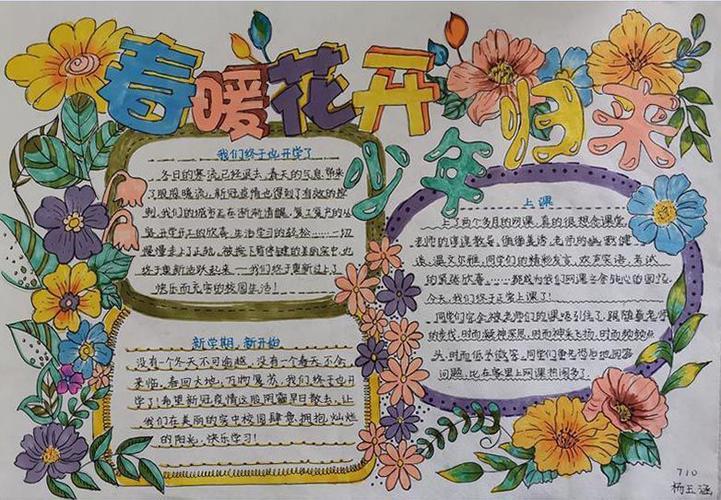 春暖花开
少年归来
我们终于也开学了
冬日的寒流已经退去,春天的气息带来
了股股暖流,新冠疫情也得到了有效的控
制,我们的城市正在渐渐清醒,复工复产的
复学开学工的欣喜,生活学习的轻松……一切
慢慢走上了正轨,被按下暂停键的美丽实中也
终于重新活跃起来——我们终于重新过上了
快乐而充实的校园生活!
新学期,新开始
没有一个冬天不可逾越,没有一个春天不会
来临。春回大地,万物复苏,我们终于也开
学了!希望新冠疫情这股阴霾早日散去,让
我们在美丽的实中校园肆意拥抱灿烂
的阳光,快乐学习!
上课
上了两个多月的网课,真的很想念课堂。
老师的谆谆教导,循循善诱,老师的幽默健
谈、温文尔雅,同学们的精彩发言、欢声笑语,考试
的紧张欣喜……都成为我们网课之余钻心的回忆。
今天,我们终于正常上课了!
同学们完全被老师们的课吸引住了,跟随着老师
的步伐,时而凝神深思,时而神采飞扬,时而频频点
头,时而低头微笑,同学们争先恐后地回答
问题,比在家里上网课热闹多了。
710
杨玉涵